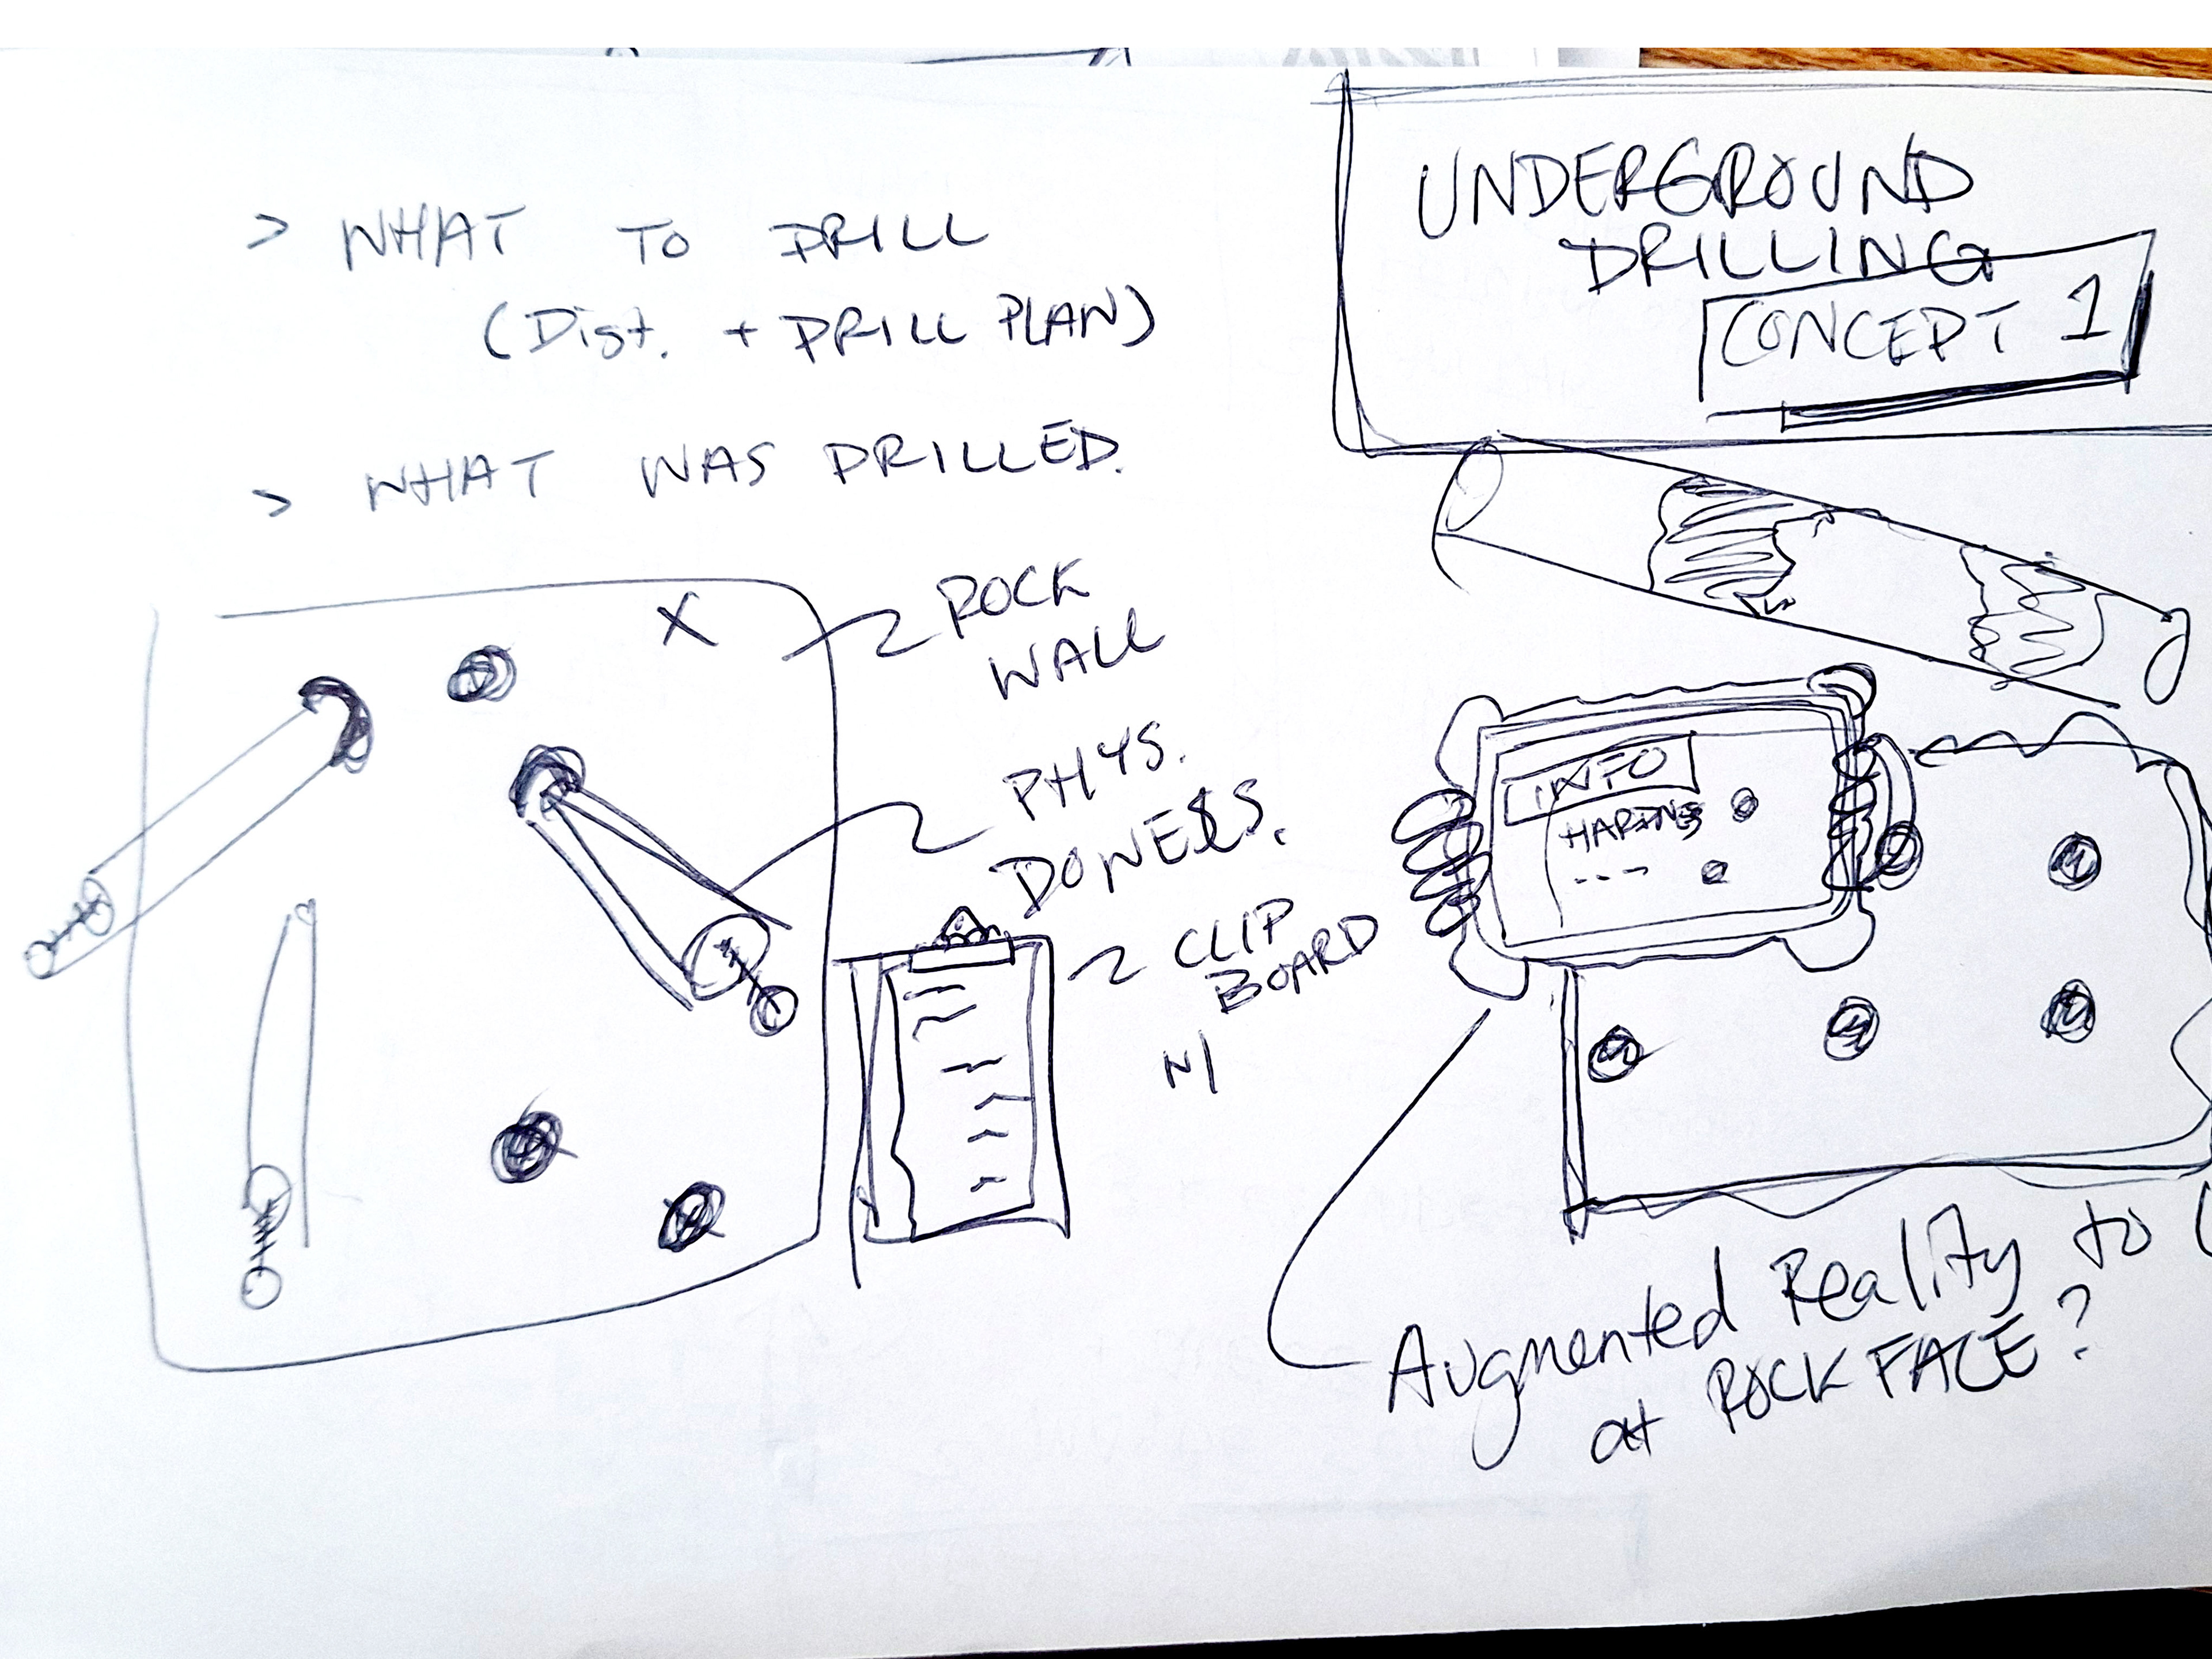 > WHAT TO DRILL
(Dist. + DRILL PLAN)
> WHAT WAS DRILLED.
UNDERGROUND
DRILLING
CONCEPT 1
ROCK
WALL
PHYS.
CLIP
BOARD
INFO
---
Augmented Reality to
at ROCK FACE?